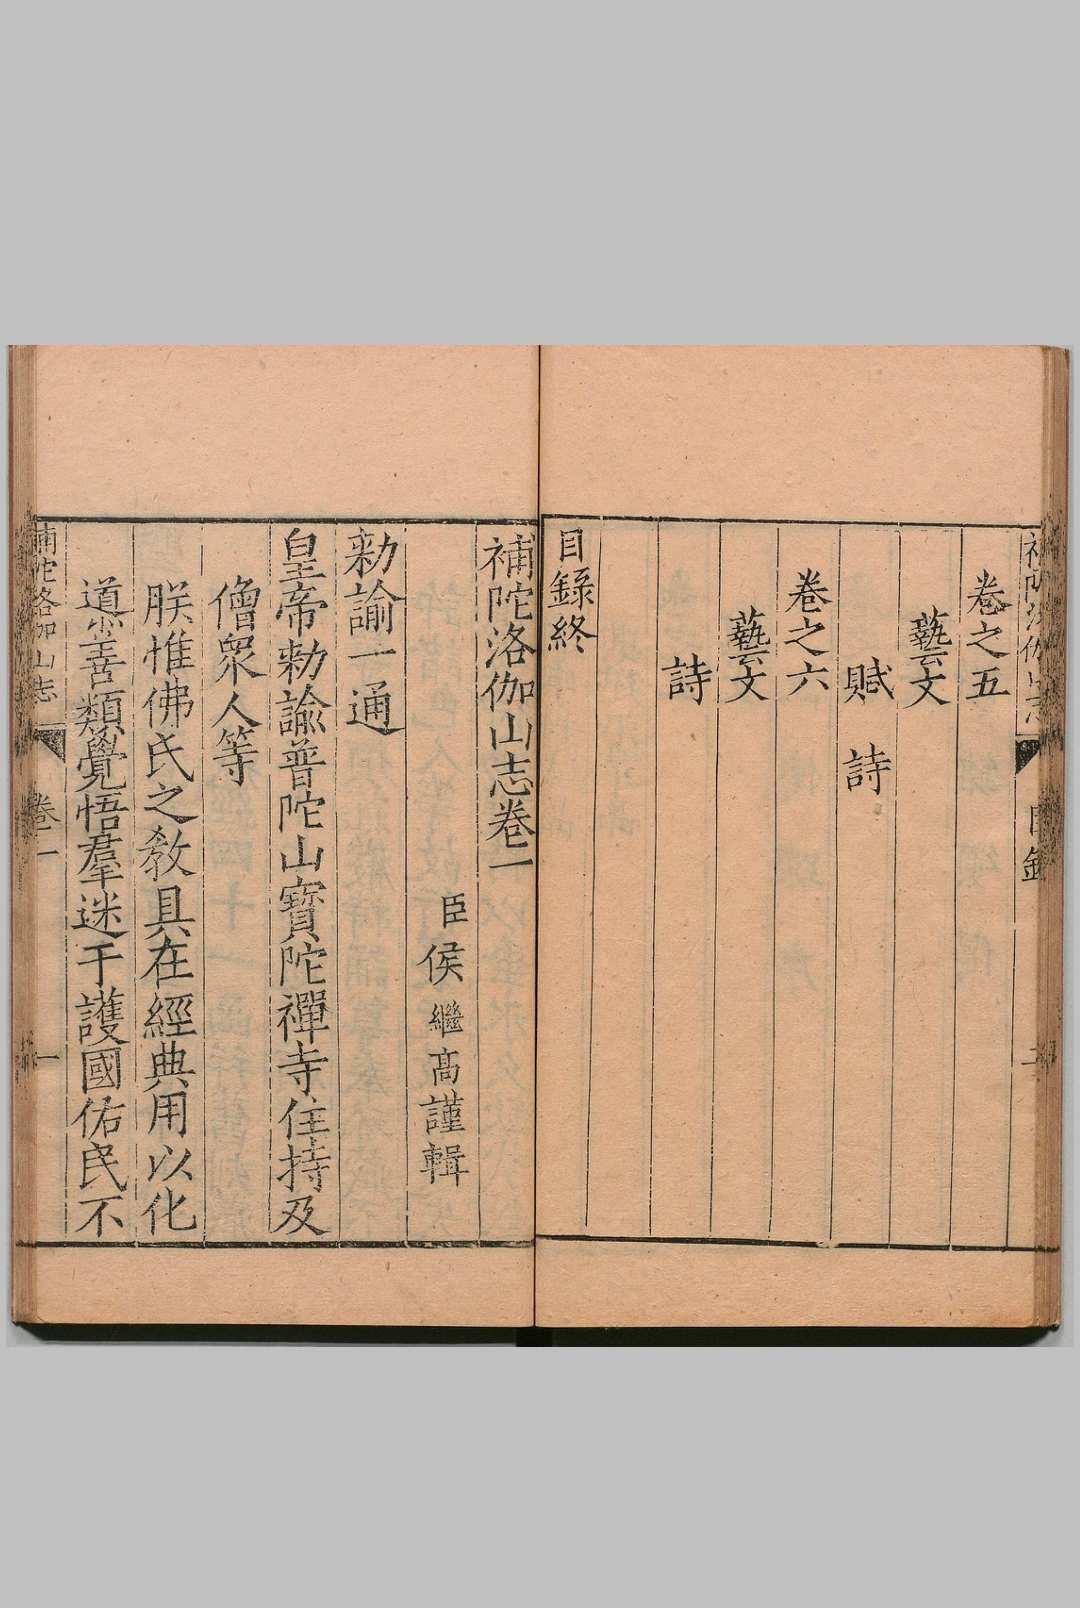 補陀洛伽山志
目錄
二
卷之五
藝文
賦　詩
卷之六
藝文
詩
目錄終
補陀洛伽山志卷一
臣侯繼高謹輯
勑諭一通
皇帝勑諭普陀山寶陀禪寺住持及
僧衆人等
朕惟佛氏之敎具在經典用以化
導善類覺悟羣迷于護國佑民不
補陀洛伽山志
卷一
一